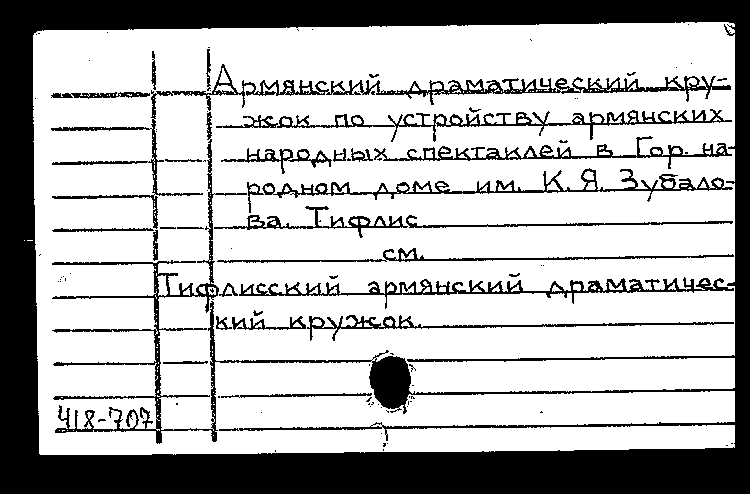 Армянский драматический кру-
жок по устройству армянских
народных спектаклей в Гор. на-
родном доме им. К. Я. Зубало-
ва. Тифлис
см.
Тифлисский армянский драматичес-
кий кружок.
418-707